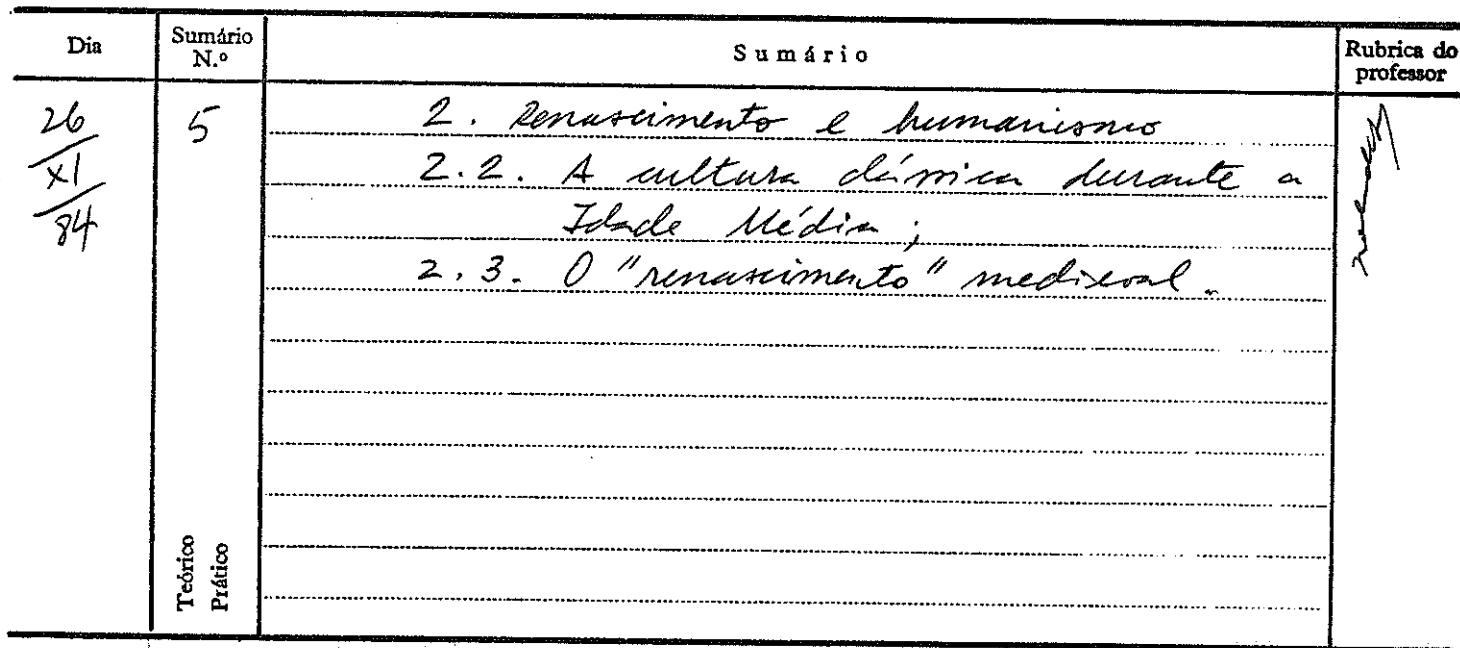 Dia
Sumário N.º
Sumário
Rubrica do professor
26
XI
84
5
2. Renascimento e humanismo
2.2. A cultura clássica durante a
Idade Média;
2.3. O "renascimento" medieval.
Teórico
Prático